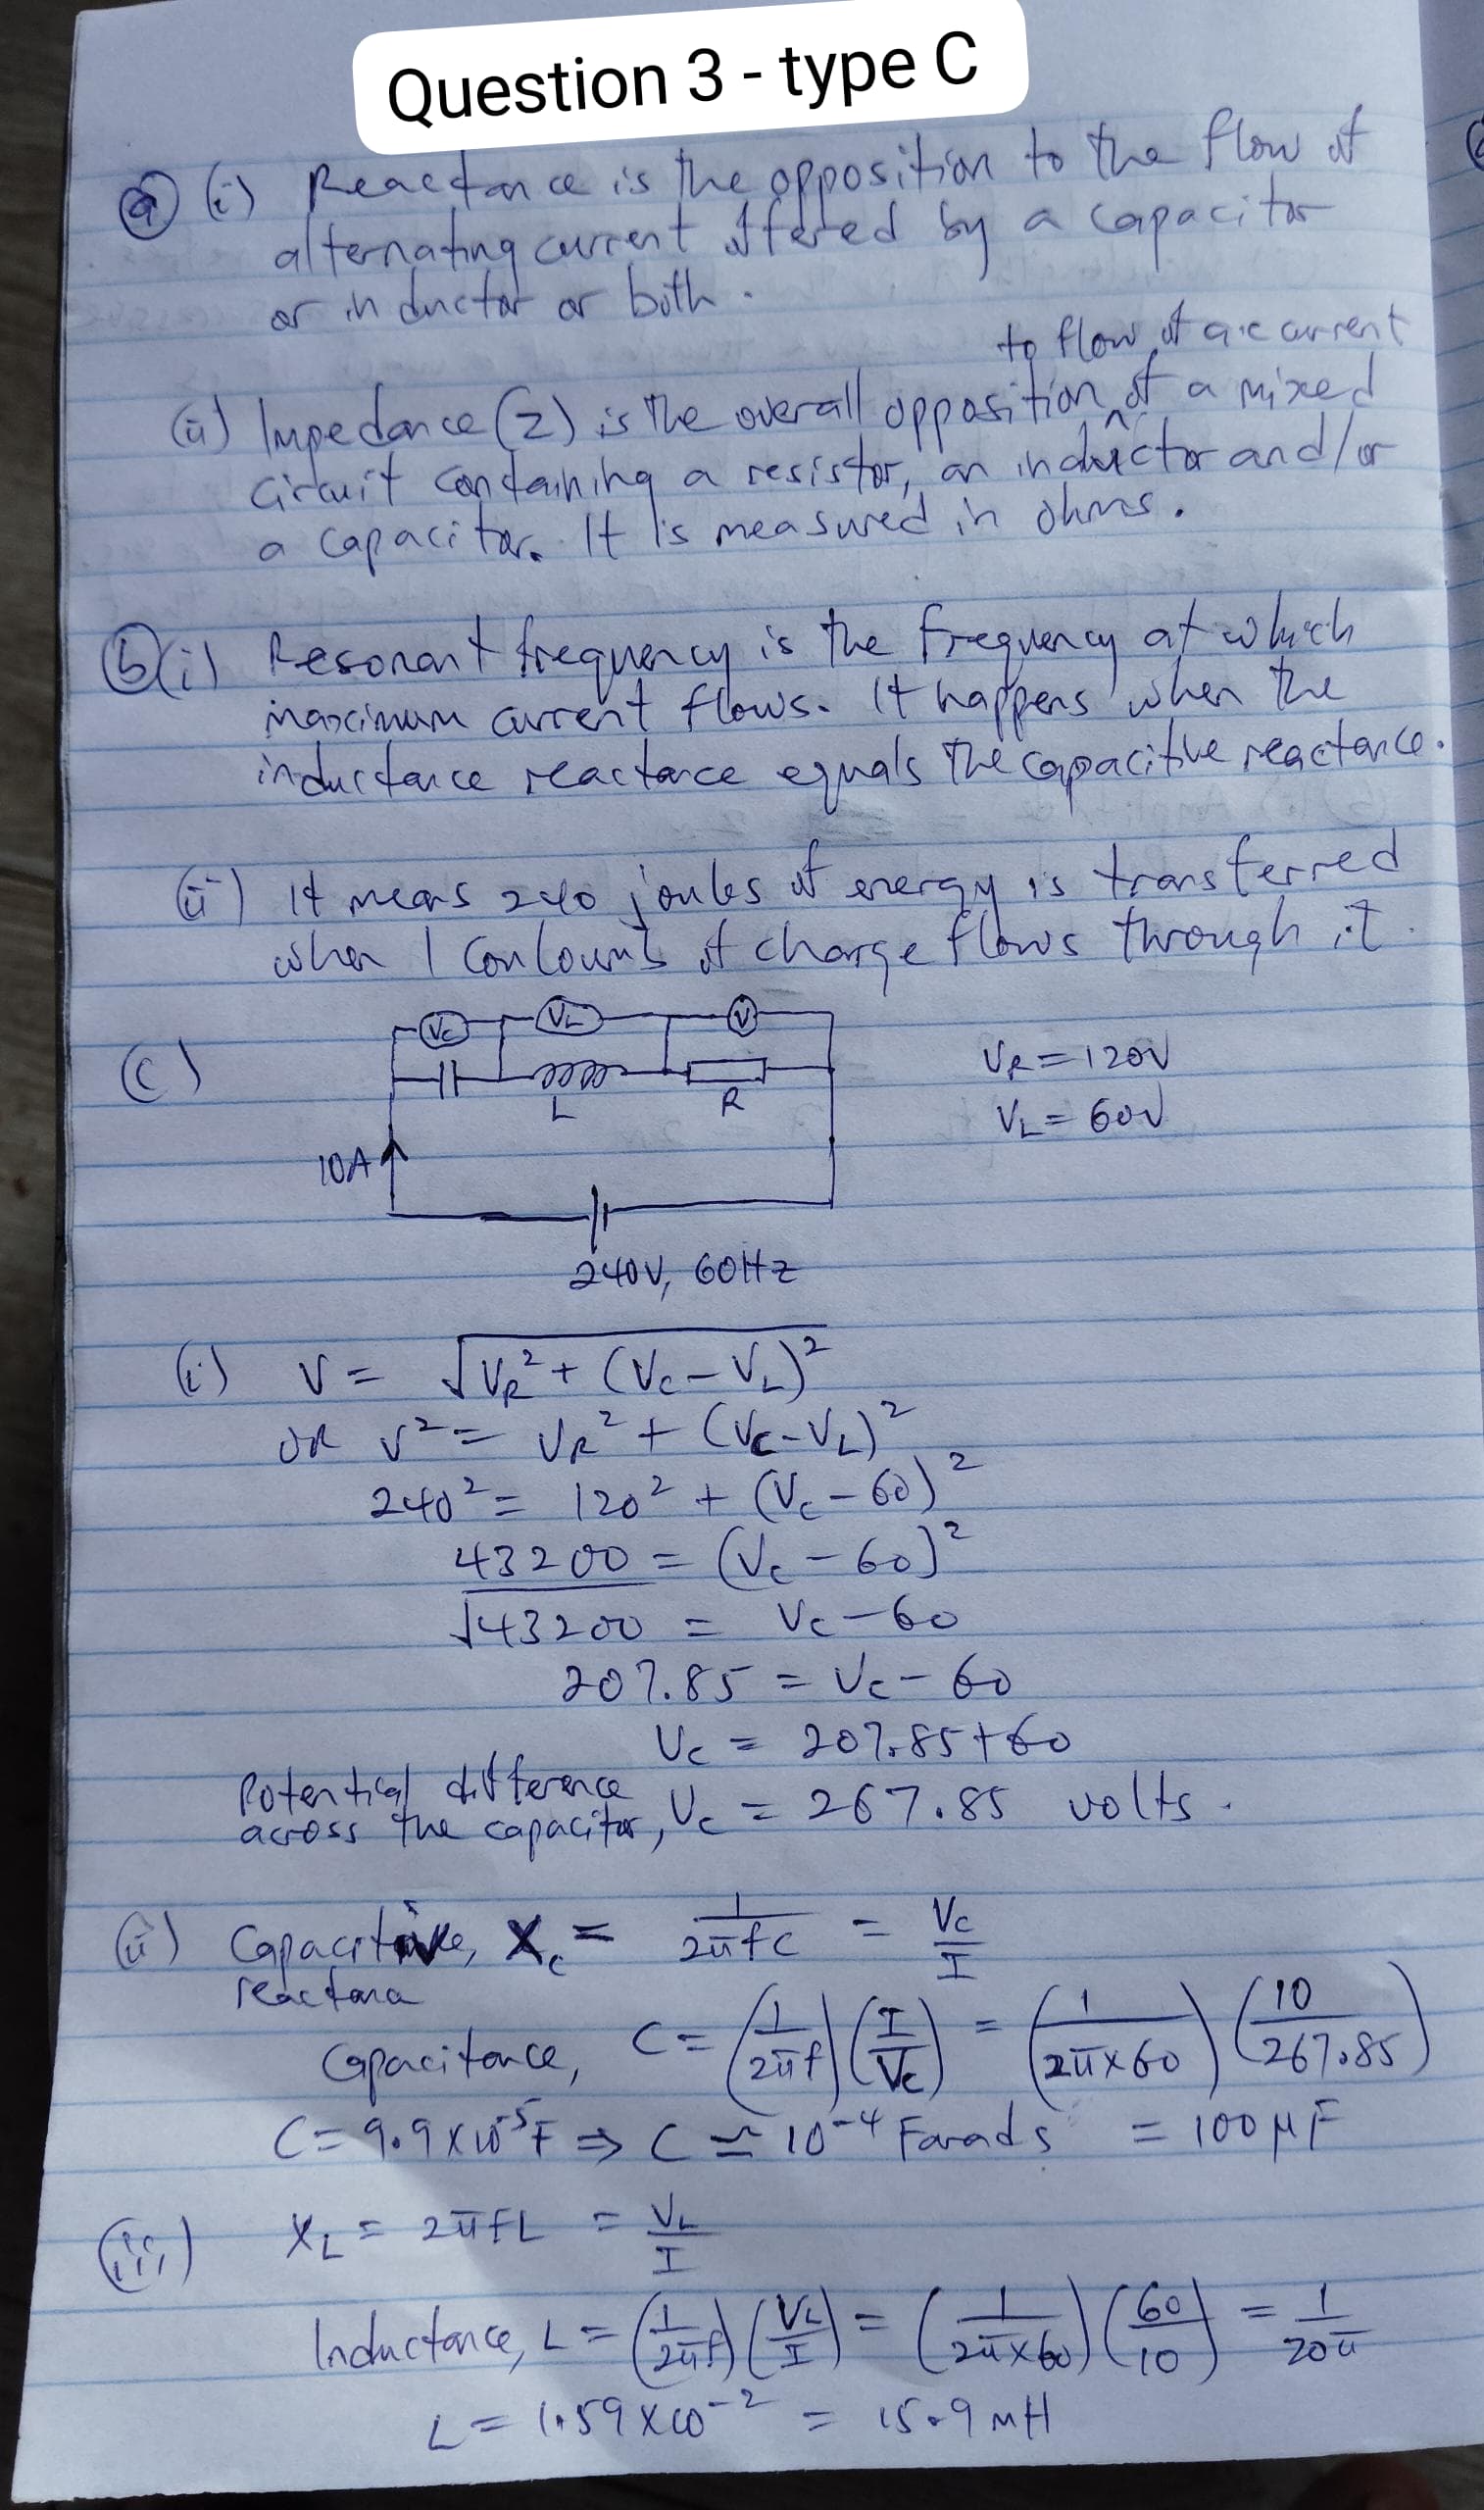 Question 3 - type C
(a) (i) Reactance is the opposition to the flow of
alternating current offered by a capacitor
or inductor or both.
to flow of a.c current
(ii) Impedance (Z) is the overall opposition ^ of a mixed
circuit containing a resistor, an inductor and/or
a capacitor. It is measured in ohms.
(b)(i) Resonant frequency is the frequency at which
maximum current flows. It happens when the
inductance reactance equals the capacitive reactance.
(ii) It means 240 joules of energy is transferred
when 1 Coulomb of charge flows through it.
(c)
Vc VL V
VR = 120V
L R
VL = 60V
10A
240V, 60Hz
(i) V = √VR² + (Vc - VL)²
OR V² = VR² + (Vc - VL)²
240² = 120² + (Vc - 60)²
43200 = (Vc - 60)²
√43200 = Vc - 60
207.85 = Vc - 60
Vc = 207.85 + 60
Potential difference
across the capacitor, Vc = 267.85 volts.
(ii) Capacitive, Xc = 1/2πfC = Vc/I
reactance
Capacitance, C = (1/2πf)(I/Vc) = (1/2π×60)(10/267.85)
C = 9.9 × 10⁻⁵F ⇒ C ≃ 10⁻⁴ Farads = 100 μF
(iii) XL = 2πfL = VL/I
Inductance, L = (1/2πf)(VL/I) = (1/2π×60)(60/10) = 1/20π
L = 1.59 × 10⁻² = 15.9 mH